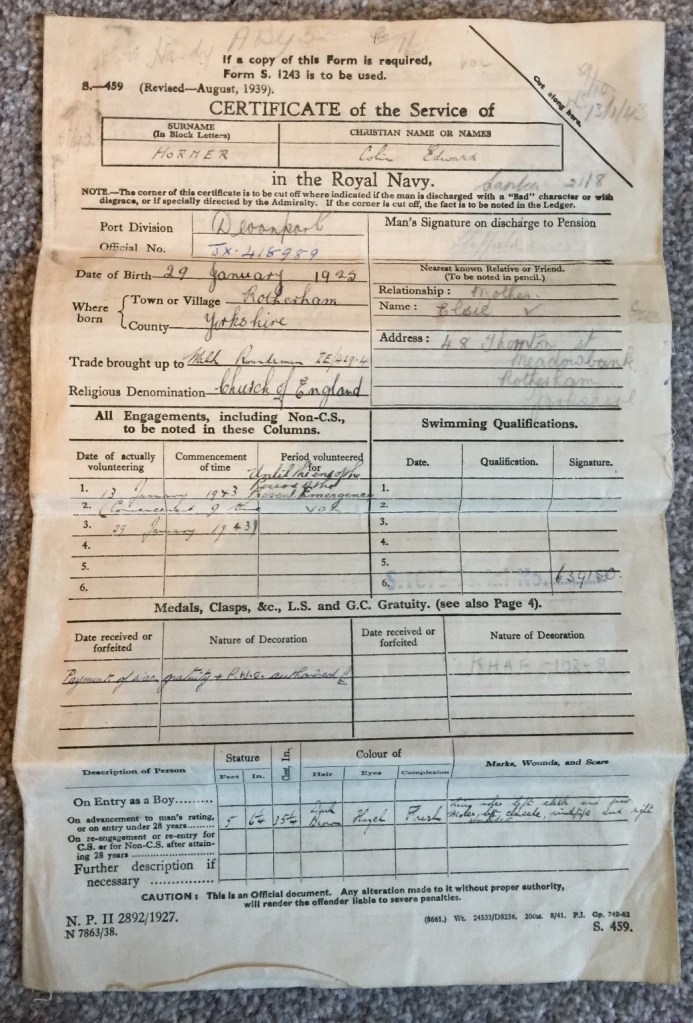 If a copy of this Form is required,
Form S. 1243 is to be used.
S.—459 (Revised—August, 1939).
Cut along here.
CERTIFICATE of the Service of
SURNAME
(In Block Letters)
CHRISTIAN NAME OR NAMES
HORMER
Colin Edward
in the Royal Navy.
NOTE.—The corner of this certificate is to be cut off where indicated if the man is discharged with a "Bad" character or with
disgrace, or if specially directed by the Admiralty. If the corner is cut off, the fact is to be noted in the Ledger.
Port Division Devonport
Man's Signature on discharge to Pension
Official No. JX-418989
Date of Birth 29 January 1925
Nearest known Relative or Friend.
(To be noted in pencil.)
Relationship: Mother.
Name: Elsie
Where born
Town or Village Rotherham
County Yorkshire
Address: 48 Thornton st
Meadowbank
Rotherham
Yorkshire
Trade brought up to
Religious Denomination Church of England
All Engagements, including Non-C.S.,
to be noted in these Columns.
Swimming Qualifications.
Date of actually volunteering
Commencement of time
Period volunteered for
Date.
Qualification.
Signature.
Until the end of the
Period of the
Present Emergency
1. 13 January 1943
2. (Commenced of time vol
3. 29 January 1943)
4.
5.
6.
1.
2.
3.
4.
5.
6.
Medals, Clasps, &c., L.S. and G.C. Gratuity. (see also Page 4).
Date received or forfeited
Nature of Decoration
Date received or forfeited
Nature of Decoration
Payment of war gratuity + P.W.C. authorised
Description of Person
Stature
Feet In.
Chest, In.
Colour of
Hair Eyes Complexion
Marks, Wounds, and Scars
On Entry as a Boy.........
On advancement to man's rating,
or on entry under 28 years
5 6¼ 35¼ Dark Brown Hazel Fresh
On re-engagement or re-entry for
C.S. or for Non-C.S. after attain-
ing 28 years
Further description if
necessary
CAUTION: This is an Official document. Any alteration made to it without proper authority,
will render the offender liable to severe penalties.
N. P. II 2892/1927.
N 7863/38.
S. 459.